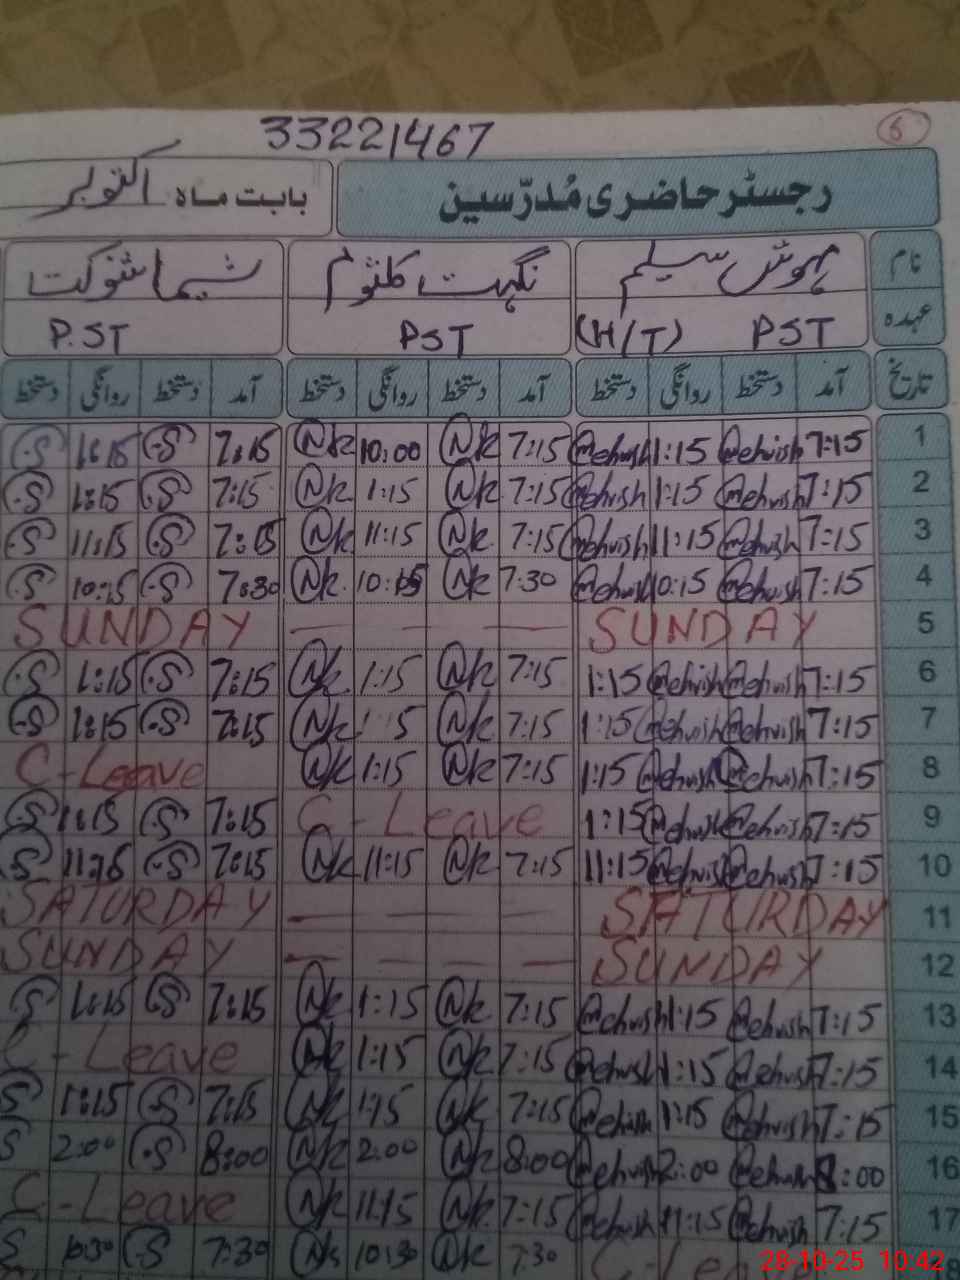 33221467
6
رجسٹر حاضری مُدرّسین بابت ماہ اکتوبر
نام مہوش سلیم نگہت کلثوم شیما شوکت
عہدہ PST (H/T) PST P.ST
تاریخ آمد دستخط روانگی دستخط آمد دستخط روانگی دستخط آمد دستخط روانگی دستخط
1 7:15 Mehvish 1:15 Mehvish 7:15 Nk 10:00 Nk 7:15 S 1:15 S
2 7:15 Mehvish 1:15 Mehvish 7:15 Nk 1:15 Nk 7:15 S 1:15 S
3 7:15 Mehvish 11:15 Mehvish 7:15 Nk 11:15 Nk 7:15 S 11:15 S
4 7:15 Mehvish 10:15 Mehvish 7:30 Nk 10:15 Nk 7:30 S 10:15 S
5 SUNDAY — — — SUNDAY
6 7:15 Mehvish Mehvish 1:15 7:15 Nk 1:15 Nk 7:15 S 1:15 S
7 7:15 Mehvish Mehvish 1:15 7:15 Nk 1:15 Nk 7:15 S 1:15 S
8 7:15 Mehvish Mehvish 1:15 7:15 Nk 1:15 Nk C-Leave
9 7:15 Mehvish Mehvish 1:15 C-Leave 7:15 S 1:15 S
10 7:15 Mehvish Mehvish 11:15 7:15 Nk 11:15 Nk 7:15 S 11:15 S
11 SATURDAY — — — SATURDAY
12 SUNDAY — — — SUNDAY
13 7:15 Mehvish 1:15 Mehvish 7:15 Nk 1:15 Nk 7:15 S 1:15 S
14 7:15 Mehvish 1:15 Mehvish 7:15 Nk 1:15 Nk C-Leave
15 7:15 Mehvish 1:15 Mehvish 7:15 Nk 1:15 Nk 7:15 S 1:15 S
16 8:00 Mehvish 2:00 Mehvish 8:00 Nk 2:00 Nk 8:00 S 2:00 S
17 7:15 Mehvish 11:15 Mehvish 7:15 Nk 11:15 Nk C-Leave
C-Lea 7:30 Nk 10:30 Nk 7:30 S 10:30 S
28-10-25 10:42